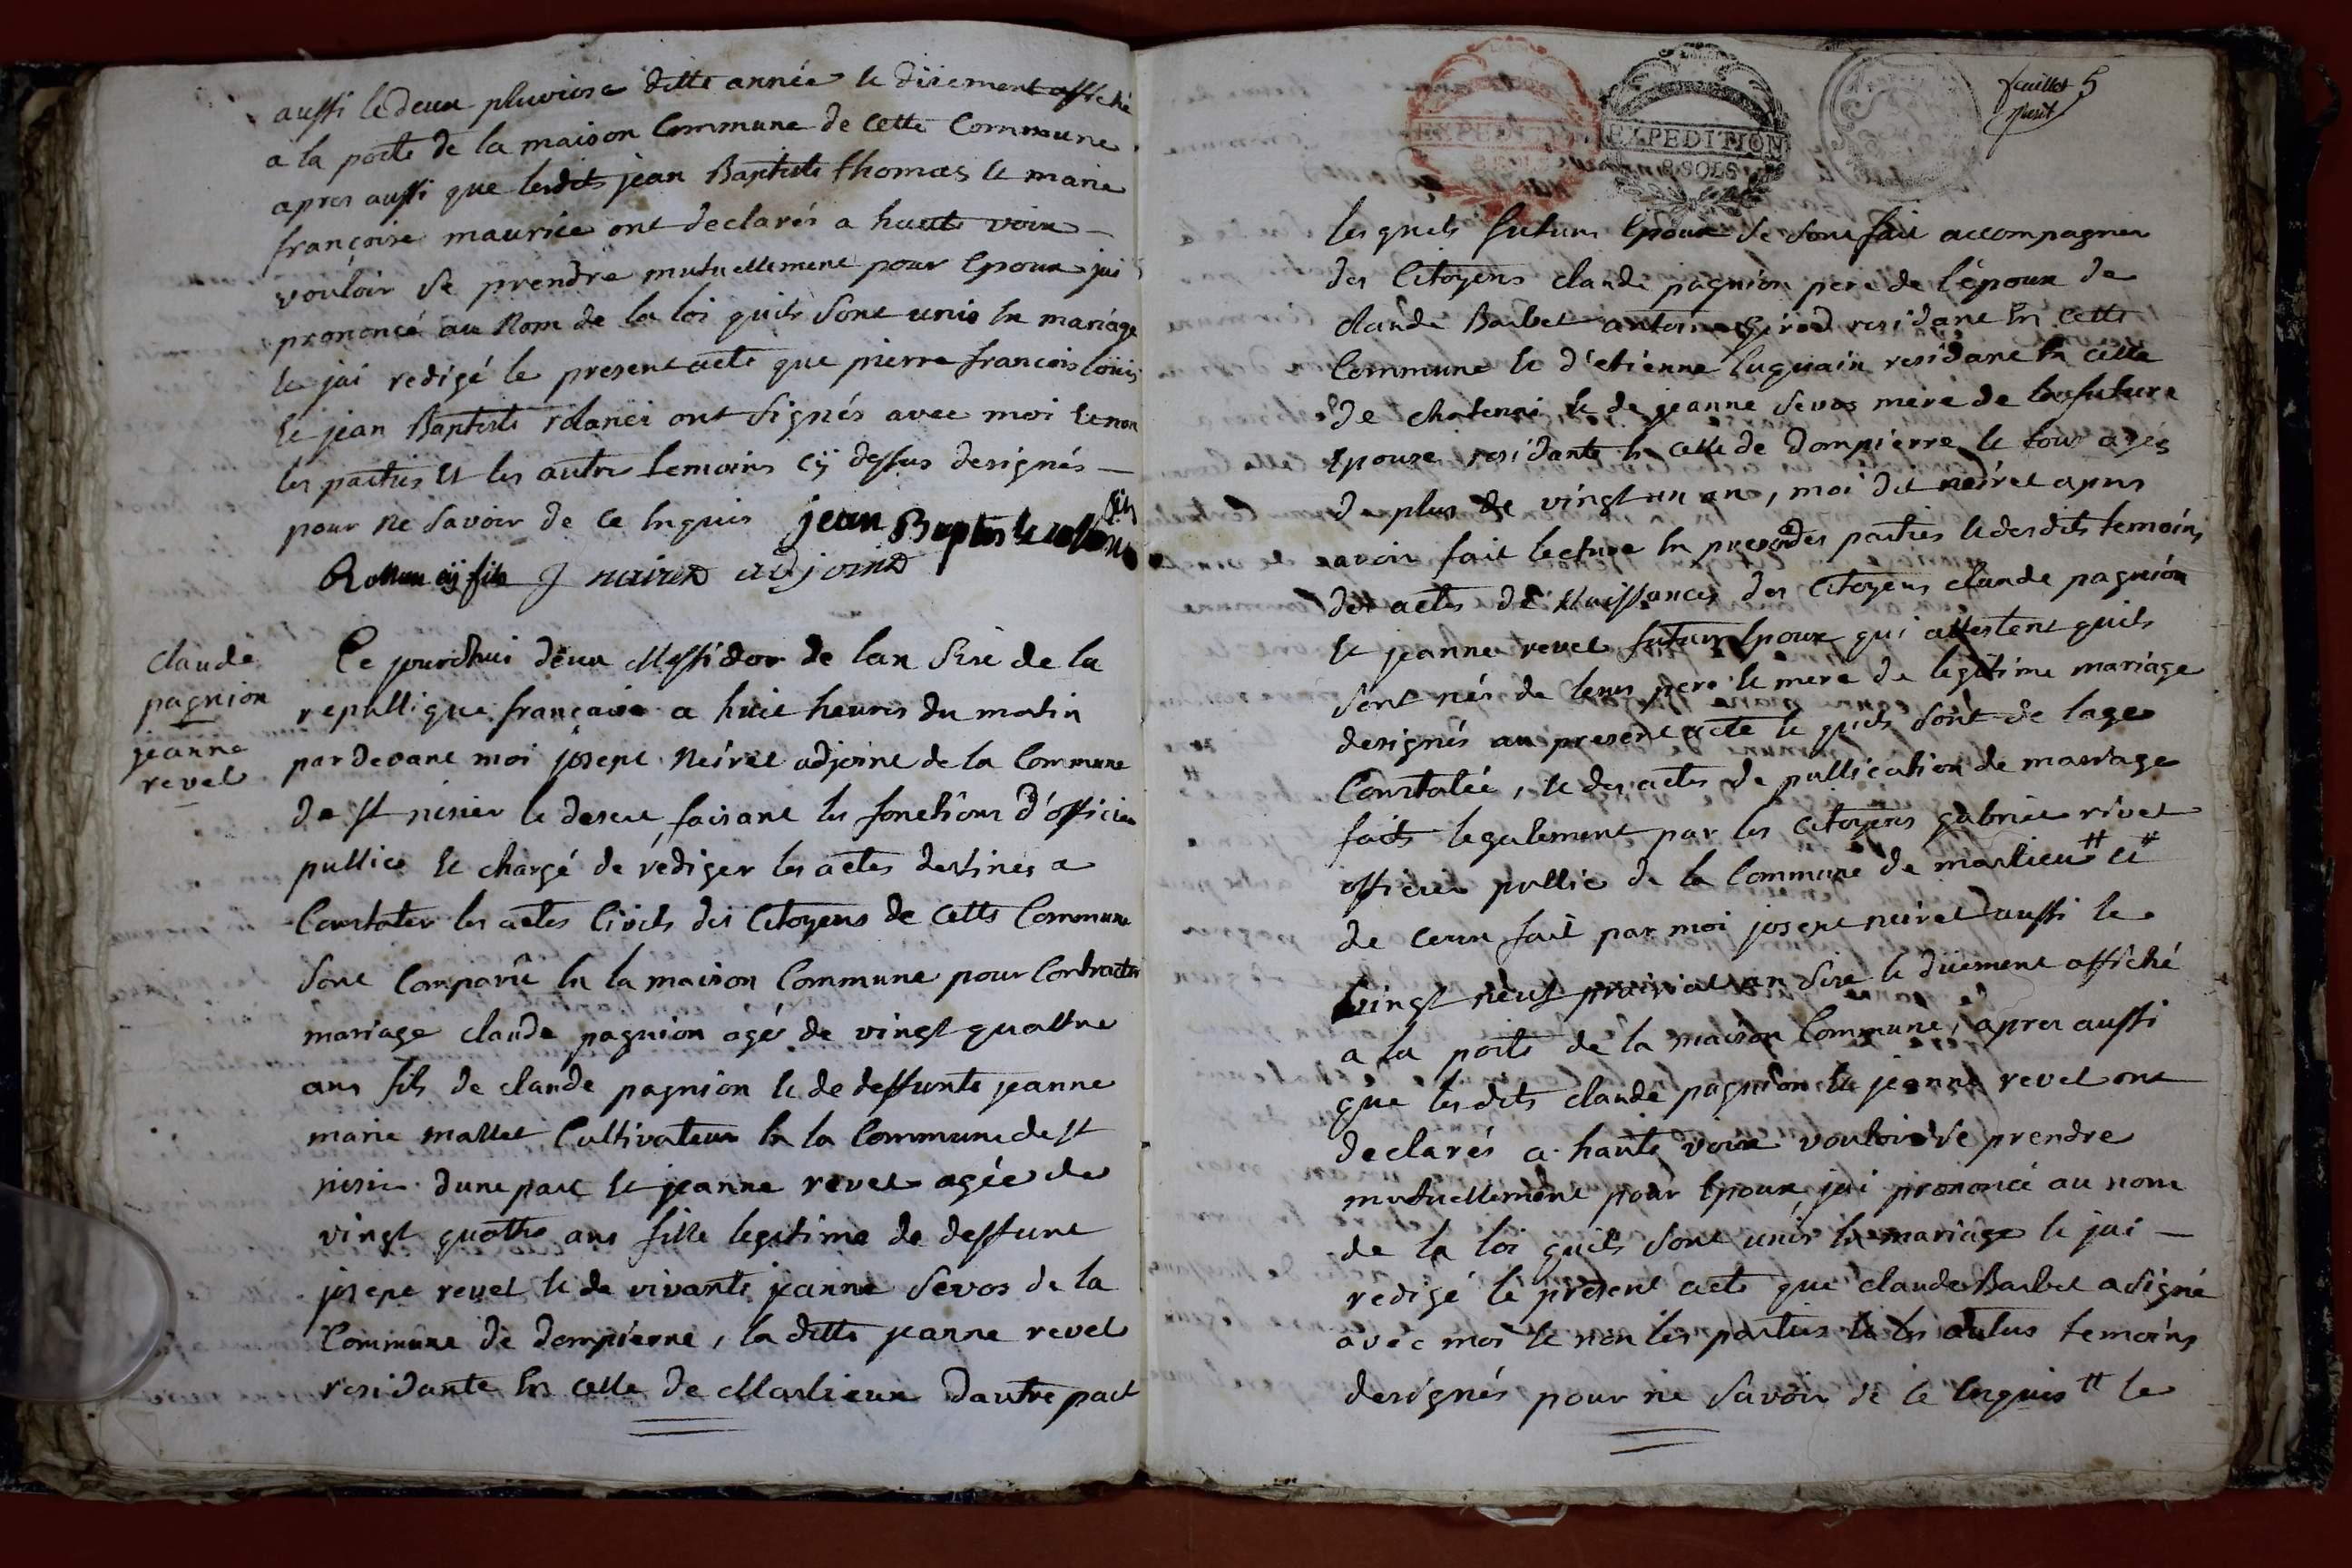 aussi le deux pluviose ditte année le duement affiché
a la porte de la maison Commune de cette Commune
apres aussi que lesdits jean Baptiste thomas le marie
françoise maurice ont declarés a haute voix
vouloir se prendre mutuellement pour Epoux jai
prononcé au Nom de la loi quils sont unis En mariage
Et jai redigé le present acte que pierre francois louis
Et jean Baptiste rolandi ont signés avec moi Et non
les parties Et les autre temoins cÿ dessus designés
pour ne savoir de ce Enquis jean Baptiste
fils J neiret adjoint
Claude
pagnion
jeanne
revel
Ce jourdhui deux Messidor de lan sixe de la
republique française a huit heures du matin
pardevant moi josept Neiret adjoint de la Commune
de st nisier le desert faisant les fonctions d'officier
public Et chargé de rediger les actes destines a
Constater les actes Civils des Citoyens de cette Commune
sont Comparu En la maison Commune pour Contracter
mariage claude pagnion agé de vingt quattre
ans fils de claude pagnion Et de deffunte jeanne
marie mallet Cultivateur En la Commune de st
nisie dune part Et jeanne revel agée de
vingt quattre ans fille legitime de deffunt
josept revel Et de vivante jeanne Sevos de la
Commune de dompierre, la ditte jeanne revel
residante En celle de Marlieux dautre part
feuillet 5
EXPEDITION
EXPEDITION
8 SOLS
lesquels futurs Epoux se sont fait accompagner
des Citoyens claude pagnion pere de l'époux de
claude Barbet antoine girod residant En cette
Commune Et d'etienne luquain residant En celle
de chatenai Et de jeanne Sevos mere de la future
Epouse residante En celle de Dompierre Et tous agés
de plus de vingt un ans, moi dit neiret apres
avoir fait lecture En presence des parties Et desdits temoins
des actes de Naissances des Citoyens claude pagnion
Et jeanne revel futurs Epoux qui attestent quils
sont nés de leurs pere Et mere de legitime mariage
designés au present acte Et quils sont de lage
Constatée, Et des actes de publication de mariage
faits legalement par les Citoyens gabriel rivet
officier public de la Commune de marlieu # Et #
de ceux fait par moi josept neiret aussi le
vingt neuf prairial an sixe Et duement affiché
a la porte de la maison Commune, apres aussi
que les dits claude pagnion Et jeanne revel ont
declarés a haute voix vouloir se prendre
mutuellement pour Epoux jai prononcé au nom
de la loi quils sont unis En mariage Et jai
redigé le present acte que claude Barbet a signé
avec moi Et non les parties Et les autres temoins
designés pour ne savoir de ce Enquis # le